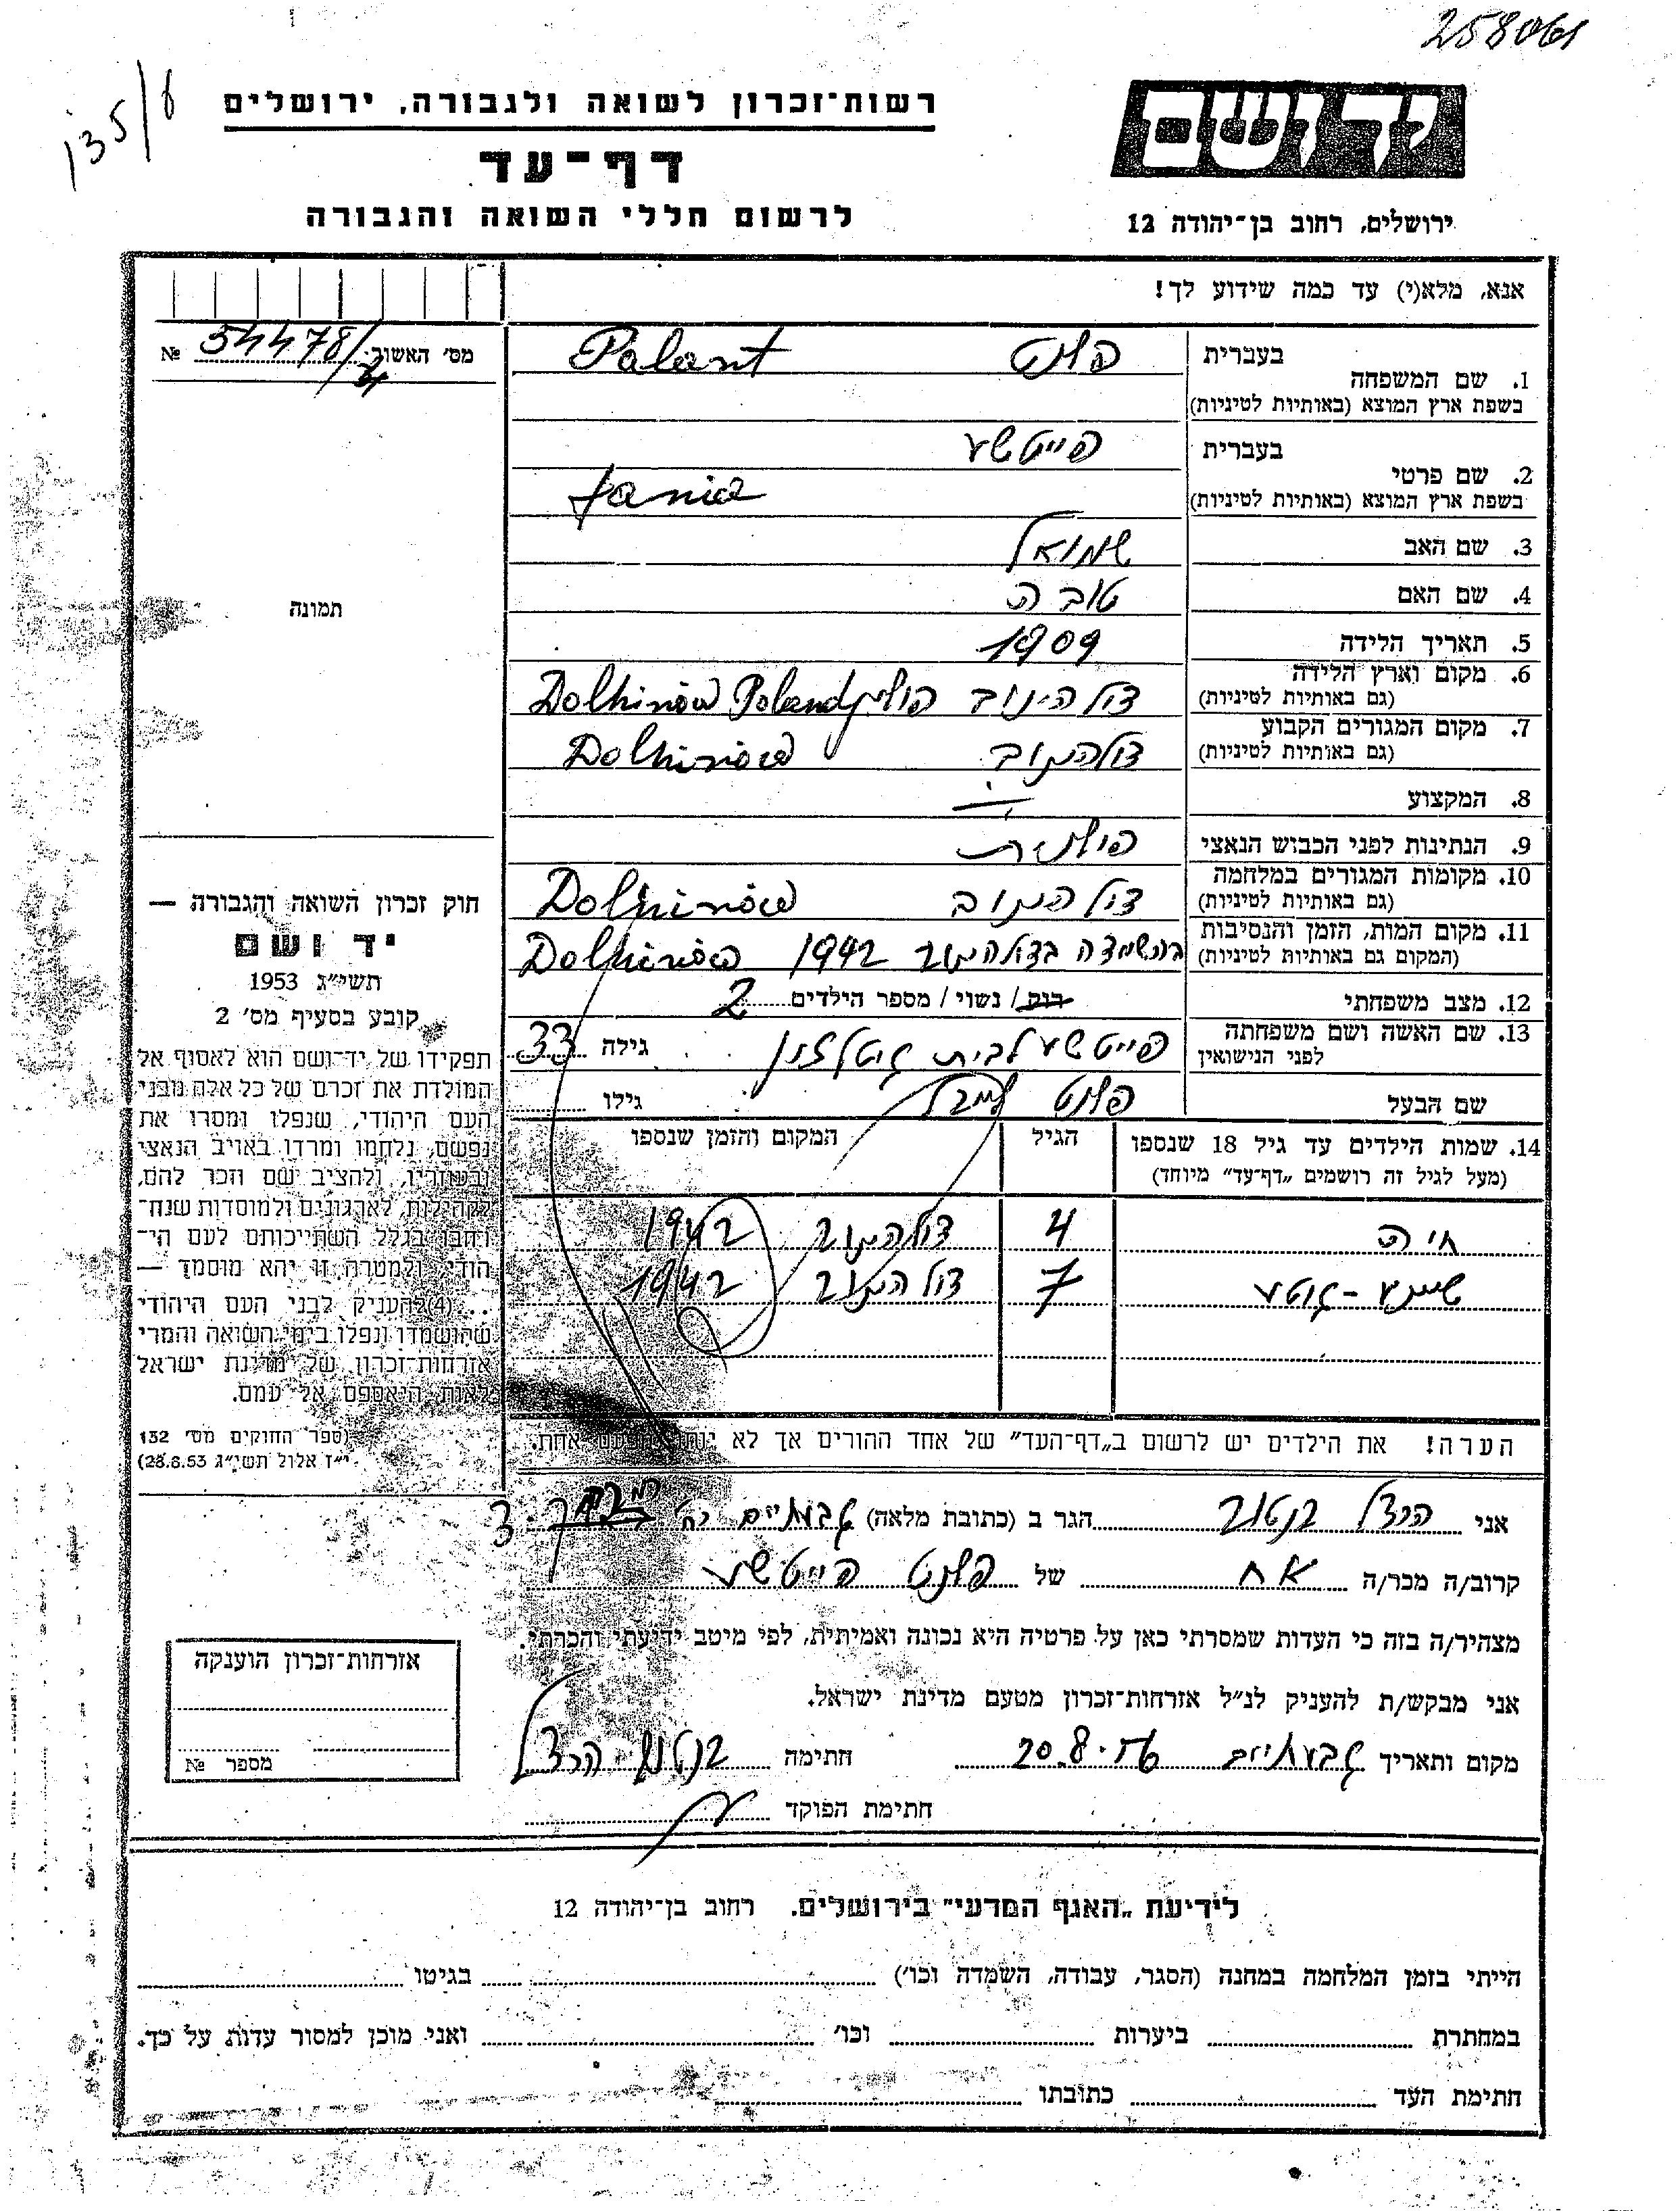 258061
135/8
יד ושם
רשות־זכרון לשואה ולגבורה, ירושלים
דף־עד
לרשום חללי השואה והגבורה
ירושלים, רחוב בן־יהודה 12
אנא, מלא(י) עד כמה שידוע לך!
מס׳ האשור № 54478/2
1. שם המשפחה בעברית פלנט Palant
בשפת ארץ המוצא (באותיות לטיניות)
2. שם פרטי בעברית פייטשע
בשפת ארץ המוצא (באותיות לטיניות) Fania
3. שם האב שמואל
4. שם האם טובה
תמונה
5. תאריך הלידה 1909
6. מקום וארץ הלידה (גם באותיות לטיניות) דולהינוב פולין Dolhinów Poland
7. מקום המגורים הקבוע (גם באותיות לטיניות) דולהינוב Dolhinów
8. המקצוע —
9. הנתינות לפני הכבוש הנאצי פולנית
10. מקומות המגורים במלחמה (גם באותיות לטיניות) דולהינוב Dolhinów
11. מקום המות, הזמן והנסיבות (המקום גם באותיות לטיניות) בהשמדה בדולהינוב 1942 Dolhinów
12. מצב משפחתי רוק / נשוי / מספר הילדים 2
13. שם האשה ושם משפחתה לפני הנישואין פייטשע לבית גילה 33
שם הבעל פלנט גילו
14. שמות הילדים עד גיל 18 שנספו הגיל המקום והזמן שנספו
(מעל לגיל זה רושמים „דף־עד״ מיוחד)
חיה 4 דולהינוב 1942
שיינע-גוטע 7 דולהינוב 1942
הערה! את הילדים יש לרשום ב„דף־העד״ של אחד ההורים אך לא יותר מפעם אחת.
חוק זכרון השואה והגבורה —
יד ושם
תשי״ג 1953
קובע בסעיף מס׳ 2
תפקידו של יד־ושם הוא לאסוף אל
המולדת את זכרם של כל אלה מבני
העם היהודי, שנפלו ומסרו את
נפשם, נלחמו ומרדו באויב הנאצי
ובעוזריו, ולהציב שם וזכר להם,
לקהילות, לארגונים ולמוסדות שנח־
רבו בגלל השתייכותם לעם הי־
הודי, ולמטרה זו יהא מוסמך —
...(4) להעניק לבני העם היהודי
שהושמדו ונפלו בימי השואה והמרי
אזרחות־זכרון של מדינת ישראל
לאות היאספם אל עמם.
(ספר החוקים מס׳ 132
י״ז אלול תשי״ג 28.8.53)
אני הרצל הגר ב (כתובת מלאה) גבעתיים רח׳ 3
קרוב/ה מכר/ה אח של פלנט פייטשע
מצהיר/ה בזה כי העדות שמסרתי כאן על פרטיה היא נכונה ואמיתית, לפי מיטב ידיעתי והכרתי.
אני מבקש/ת להעניק לנ״ל אזרחות־זכרון מטעם מדינת ישראל.
מקום ותאריך גבעתיים 20.8.56 חתימה הרצל
חתימת הפוקד
אזרחות־זכרון הוענקה
מספר №
לידיעת „האגף המדעי״ בירושלים. רחוב בן־יהודה 12
הייתי בזמן המלחמה במחנה (הסגר, עבודה, השמדה וכו׳) בגיטו
במחתרת ביערות וכו׳ ואני מוכן למסור עדות על כך.
חתימת העד כתובתו